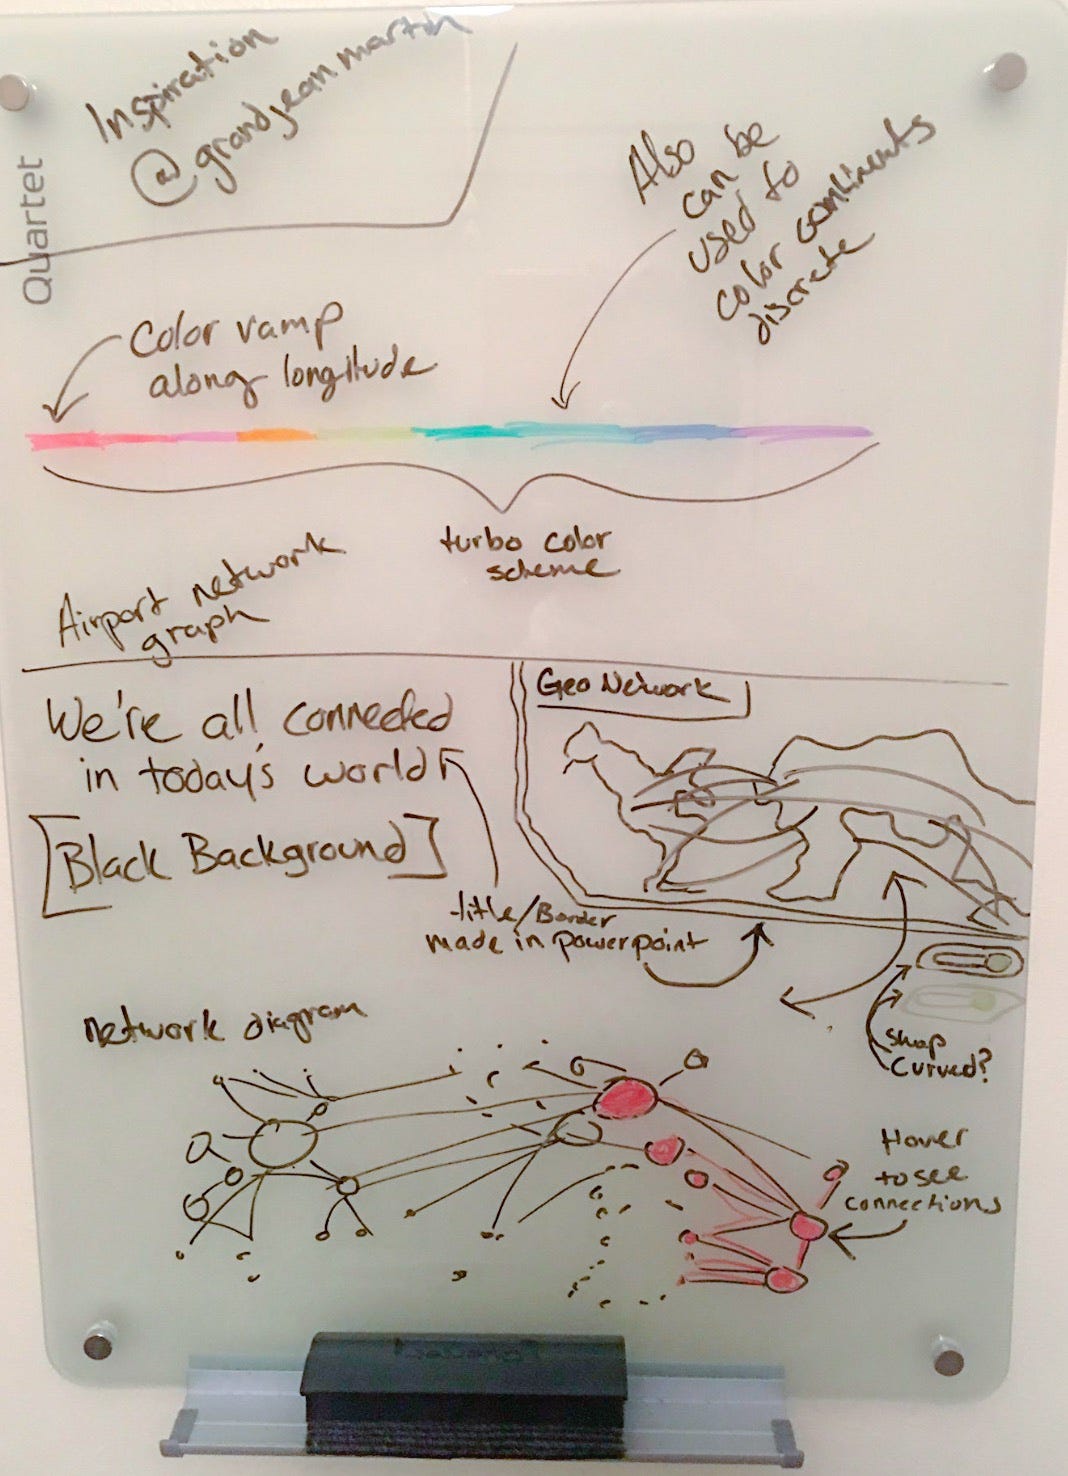 Inspiration
@grandjeanmartin
Quartet
Also
can be
used to
color continents
discrete
Color ramp
along longitude
turbo color
scheme
Airport network
graph
We're all connected
in today's world
[Black Background]
Geo Network
title/Border
made in powerpoint
Swap
Curved?
network diagram
Hover
to see
connections